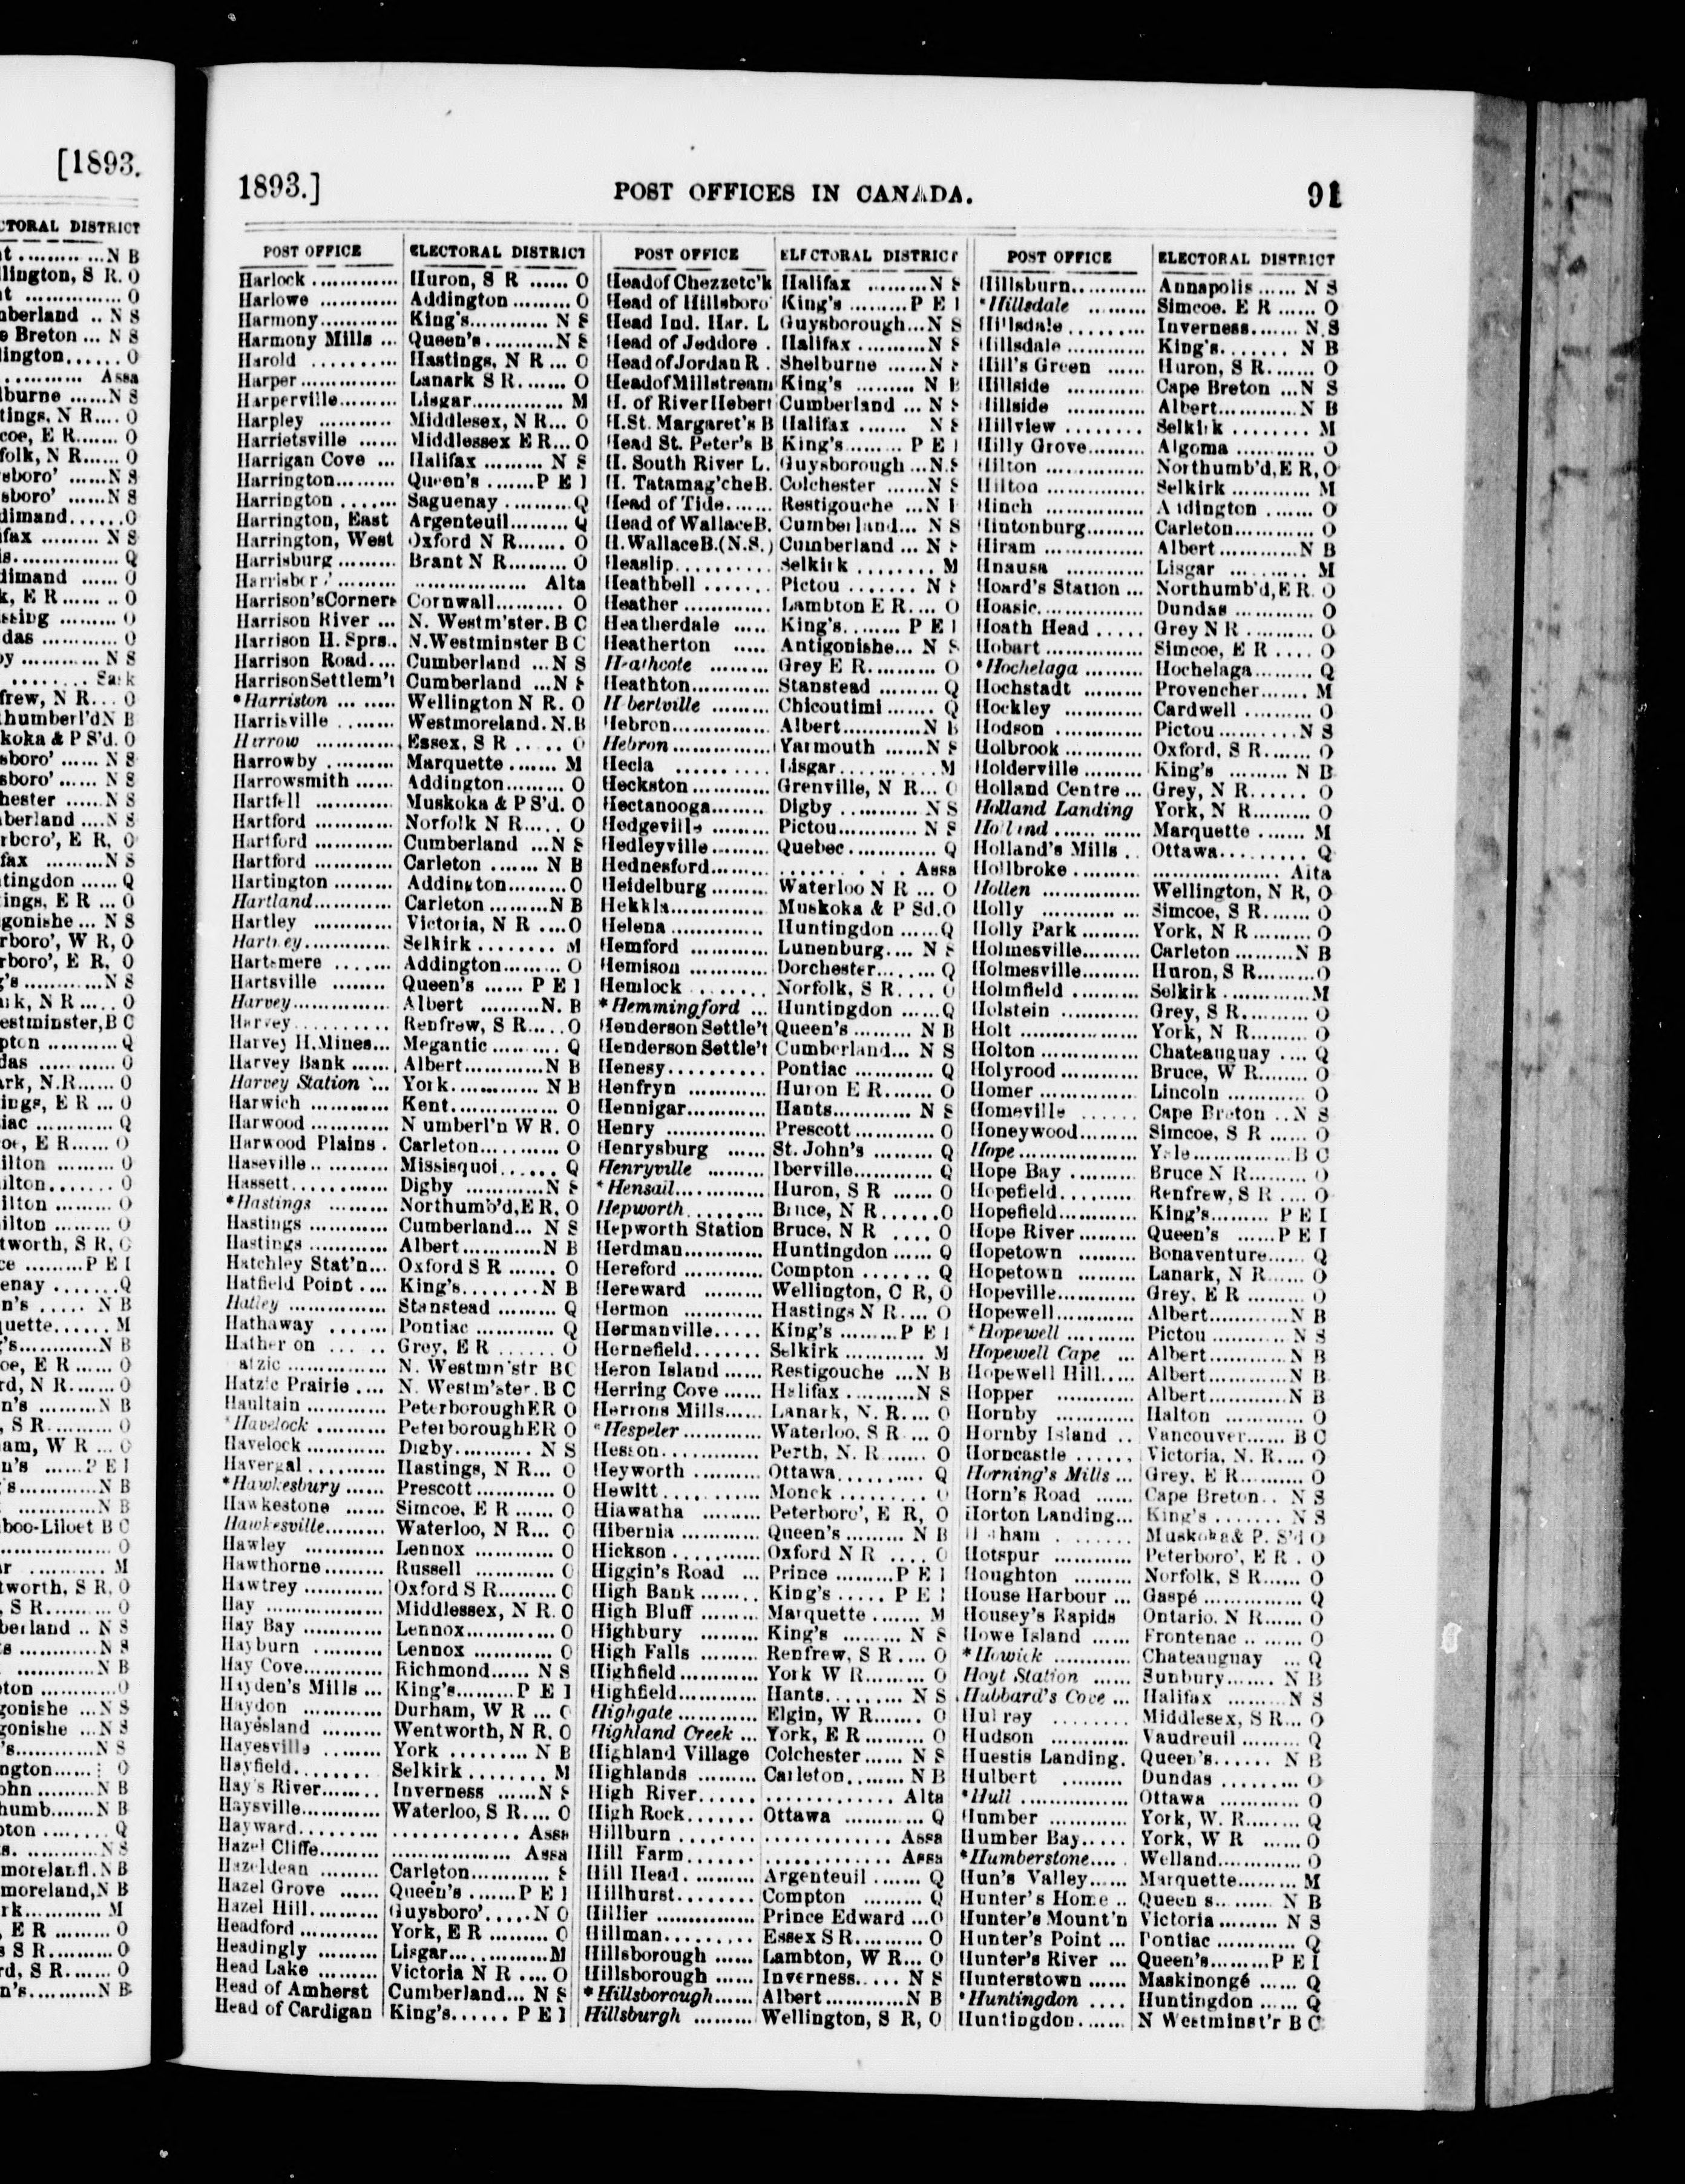 [1893.
CTORAL DISTRICT
N B
lington, S R. O
O
nberland .. N S
e Breton ... N S
lington...... O
........... Assa
lburne ......N S
tings, N R.... O
coe, E R....... O
folk, N R...... O
sboro' ......N S
sboro' ......N S
dimand......O
ifax ......... N S
s................ Q
dimand ...... O
k, E R....... .. O
O
das ............ O
N S
frew, N R... O
koka & P S'd. O
sboro' ...... N S
sboro' ...... N S
hester ......N S
berland ....N S
rboro', E R, O
fax .........N S
tingdon ......Q
ings, E R ... O
gonishe ... N S
rboro', W R, O
rboro', E R, O
's...........N S
N R..... O
estminster, B C
pton ...........Q
das ............ O
ark, N.R...... O
ings, E R ... O
iac ............ Q
oe, E R...... O
ilton ......... O
ilton........ O
ilton ......... O
ilton ......... O
tworth, S R,
ce .........P E I
enay ........Q
n's ..... N B
quette...... M
's...........N B
oe, E R ...... O
rd, N R....... O
n's .........N B
, S R.......... O
am, W R ...
n's ......P E I
's............N B
............N B
boo-Liloet B C
................ O
r ........... M
tworth, S R, O
, S R.......... O
berland .. N S
s............N S
............N B
ton ............O
gonishe ...N S
gonishe ...N S
's............N S
ngton...... O
ohn .........N B
humb.......N B
oton ........ Q
N S
moreland, N B
rk............ M
, E R ......... O
s S R.......... O
rd, S R....... O
n's..........N B
1893.] POST OFFICES IN CANADA. 91
POST OFFICE ELECTORAL DISTRICT
Harlock ............ Huron, S R ...... O
Harlowe ............ Addington ......... O
Harmony............ King's............ N S
Harmony Mills ... Queen's..........N S
Harold ......... Hastings, N R ... O
Harper............... Lanark S R....... O
Harperville......... Lisgar............. M
Harpley ........... Middlesex, N R... O
Harrietsville ...... Middlessex E R... O
Harrigan Cove ... Halifax ......... N S
Harrington......... Queen's .......P E I
Harrington ....... Saguenay .......... Q
Harrington, East Argenteuil......... Q
Harrington, West Oxford N R....... O
Harrisburg ......... Brant N R......... O
................ Alta
Harrison'sCorners Cornwall.......... O
Harrison River ... N. Westm'ster. B C
Harrison H. Sprs.. N.Westminster B C
Harrison Road.... Cumberland ...N S
HarrisonSettlem't Cumberland ...N S
*Harriston ........ Wellington N R. O
Harrisville ........ Westmoreland. N.B
Harrow ............ Essex, S R ..... O
Harrowby .......... Marquette ....... M
Harrowsmith ...... Addington......... O
Hartfell ........... Muskoka & P S'd. O
Hartford ............ Norfolk N R..... O
Hartford ............ Cumberland ...N S
Hartford ............ Carleton ....... N B
Hartington ......... Addington.........O
Hartland............ Carleton .........N B
Hartley ............ Victoria, N R ....O
Hartney............ Selkirk ........ M
Hartsmere ....... Addington......... O
Hartsville ........ Queen's ...... P E I
Harvey.............. Albert .........N. B
Harvey.......... Renfrew, S R..... O
Harvey H.Mines... Megantic .......... Q
Harvey Bank ...... Albert............N B
Harvey Station ... York............. N B
Harwich ............ Kent................ O
Harwood ............ Numberl'n W R. O
Harwood Plains . Carleton............ O
Haseville............ Missisquoi...... Q
Hassett............. Digby ............N S
*Hastings ......... Northumb'd,E R, O
Hastings ............ Cumberland... N S
Hastings ............ Albert............N B
Hatchley Stat'n... Oxford S R ....... O
Hatfield Point .... King's.........N B
Hatley .............. Stanstead ......... Q
Hathaway ....... Pontiac ............ Q
Grey, E R ...... O
atzic ............... N. Westmn'str BC
Hatzic Prairie .... N. Westm'ster. B C
Haultain ............ PeterboroughER O
*Havelock .......... PeterboroughER O
Havelock ............ Digby........... N S
Havergal .......... Hastings, N R... O
*Hawkesbury ...... Prescott............ O
Hawkestone ...... Simcoe, E R ...... O
Hawkesville......... Waterloo, N R... O
Hawley ............ Lennox ............ O
Hawthorne......... Russell ............ O
Hawtrey ............ Oxford S R......... O
Hay .................. Middlessex, N R. O
Hay Bay ............ Lennox............. O
Hayburn .......... Lennox ............ O
Hay Cove............ Richmond...... N S
Hayden's Mills ... King's.........P E I
Haydon ............ Durham, W R ... O
Hayesland ......... Wentworth, N R. O
Hayesville ........ York ......... N B
Hayfield........ Selkirk ........ M
Hay's River........ Inverness ......N S
Haysville............ Waterloo, S R.... O
Hayward.......... ............. Assa
Hazel Cliffe......... ................ Assa
Hazeldean ......... Carleton............
Hazel Grove ...... Queen's .......P E I
Hazel Hill.......... Guysboro'.....N O
Headford ............ York, E R ......... O
Headingly ......... Lisgar..............M
Head Lake ......... Victoria N R .... O
Head of Amherst Cumberland... N S
Head of Cardigan King's...... P E I
POST OFFICE ELECTORAL DISTRICT
Headof Chezzetc'k Halifax .........N S
Head of Hillsboro' King's .........P E I
Head Ind. Har. L Guysborough...N S
Head of Jeddore . Halifax ..........N S
Head of Jordan R . Shelburne ......N S
HeadofMillstream King's ......... N B
H. of RiverHebert Cumberland ... N S
H.St. Margaret's B Halifax ....... N S
Head St. Peter's B King's....... P E I
H. South River L. Guysborough ...N.S
H. Tatamag'cheB. Colchester ......N S
Head of Tide....... Restigouche ...N B
Head of WallaceB. Cumberland... N S
H.WallaceB.(N.S.) Cumberland ... N S
Heaslip............. Selkirk ......... M
Heathbell ....... Pictou ....... N S
Heather ............ Lambton E R.... O
Heatherdale ..... King's........ P E I
Heatherton ..... Antigonishe... N S
Heathcote ......... Grey E R.......... O
Heathton............ Stanstead ......... Q
Hebertville ......... Chicoutimi ....... Q
Hebron............. Albert............N B
Hebron.............. Yarmouth ......N S
Hecla ........... Lisgar............M
Heckston ............ Grenville, N R... O
Hectanooga........ Digby ......... N S
Hedgeville ......... Pictou............ N S
Hedleyville......... Quebec............. Q
Hednesford......... .......... Assa
Heidelburg ......... Waterloo N R ... O
Hekkla.............. Muskoka & P Sd.O
Helena .............. Huntingdon ......Q
Hemford ........... Lunenburg.... N S
Hemison ............ Dorchester........ Q
Hemlock ......... Norfolk, S R.... O
*Hemmingford ... Huntingdon ......Q
Henderson Settle't Queen's ......... N B
Henderson Settle't Cumberland... N S
Henesy............. Pontiac ............ Q
Henfryn ............ Huron E R....... O
Hennigar............ Hants............ N S
Henry ............... Prescott............ O
Henrysburg ...... St. John's ......... Q
Henryville ......... Iberville............ Q
*Hensall............. Huron, S R ...... O
Hepworth.......... Bruce, N R......O
Hepworth Station Bruce, N R .... O
Herdman............ Huntingdon ...... Q
Hereford ............ Compton ....... Q
Hereward ......... Wellington, C R, O
Hermon ............ Hastings N R.... O
Hermanville..... King's .........P E I
Hernefield....... Selkirk ............ M
Heron Island ...... Restigouche ...N B
Herring Cove ...... Halifax ..........N S
Herrons Mills...... Lanark, N. R.... O
*Hespeler............ Waterloo, S R ... O
Hesson............. Perth, N. R ...... O
Heyworth .......... Ottawa.......... Q
Hewitt............. Monck ......... O
Hiawatha ......... Peterboro', E R, O
Hibernia ............ Queen's ......... N B
Hickson ............ Oxford N R .... O
Higgin's Road ... Prince .........P E I
High Bank........ King's ..... P E I
High Bluff ......... Marquette ....... M
Highbury ......... King's ......... N S
High Falls ......... Renfrew, S R.... O
Highfield ............ York W R......... O
Highfield............ Hants.......... N S
Highgate ............ Elgin, W R....... O
Highland Creek ... York, E R ......... O
Highland Village Colchester...... N S
Highlands ......... Carleton........ N B
High River...... ............. Alta
High Rock....... Ottawa ............ Q
Hillburn ........ ............. Assa
Hill Farm....... ............. Assa
Hill Head.......... Argenteuil ....... Q
Hillhurst........ Compton ......... Q
Hillier ............... Prince Edward ...O
Hillman.......... Essex S R......... O
Hillsborough ...... Lambton, W R... O
Hillsborough ...... Inverness..... N S
*Hillsborough...... Albert............N B
Hillsburgh ......... Wellington, S R, O
POST OFFICE ELECTORAL DISTRICT
Hillsburn........... Annapolis ...... N S
*Hillsdale ......... Simcoe. E R ...... O
Hillsdale ......... Inverness....... N.S
Hillsdale ............ King's....... N B
Hill's Green ...... Huron, S R....... O
Hillside ............ Cape Breton ...N S
Hillside ............ Albert............N B
Hillview ........ Selkirk ........ M
Hilly Grove......... Algoma ............ O
Hilton .............. Northumb'd,E R,O
Hilton .............. Selkirk ............ M
Hinch .............. Addington ....... O
Hintonburg........ Carleton............ O
Hiram .............. Albert...........N B
Hnausa ............ Lisgar .......... M
Hoard's Station ... Northumb'd,E R. O
Hoasic.............. Dundas ............ O
Hoath Head ..... Grey N R .......... O
Hobart .............. Simcoe, E R .... O
*Hochelaga ......... Hochelaga......... Q
Hochstadt ......... Provencher....... M
Hockley ............ Cardwell .......... O
Hodson ............ Pictou ............N S
Holbrook ............ Oxford, S R....... O
Holderville ......... King's ......... N B
Holland Centre ... Grey, N R...... O
Holland Landing York, N R......... O
Holland ........... Marquette ....... M
Holland's Mills .. Ottawa......... Q
Hollbroke .......... ................ Alta
Hollen .............. Wellington, N R, O
Holly .............. Simcoe, S R....... O
Holly Park ......... York, N R ......... O
Holmesville......... Carleton .........N B
Holmesville......... Huron, S R.........O
Holmfield .......... Selkirk .............M
Holstein ............ Grey, S R.......... O
Holt .................. York, N R......... O
Holton .............. Chateauguay .... Q
Holyrood ............ Bruce, W R........ O
Homer .............. Lincoln ............ O
Homeville ...... Cape Breton ..N S
Honeywood......... Simcoe, S R ...... O
Hope................. Yale...............B C
Hope Bay .......... Bruce N R......... O
Hopefield.......... Renfrew, S R .... O
Hopefield............ King's......... P E I
Hope River......... Queen's ......P E I
Hopetown ......... Bonaventure...... Q
Hopetown ......... Lanark, N R...... O
Hopeville............ Grey, E R ......... O
Hopewell............ Albert............N B
*Hopewell .......... Pictou ........... N S
Hopewell Cape ... Albert............N B
Hopewell Hill..... Albert............N B
Hopper ............ Albert............N B
Hornby ............ Halton ............ O
Hornby Island .. Vancouver...... B C
Horncastle ...... Victoria, N. R.... O
Horning's Mills ... Grey, E R.......... O
Horn's Road ...... Cape Breton.. N S
Horton Landing... King's ....... N S
Muskoka& P. S'd O
Hotspur ............ Peterboro', E R . O
Houghton ......... Norfolk, S R...... O
House Harbour ... Gaspé .............. Q
Housey's Rapids Ontario. N R...... O
Howe Island ...... Frontenac ......... O
*Howick ............ Chateauguay ... Q
Hoyt Station ...... Sunbury....... N B
Hubbard's Cove ... Halifax ........ N S
Hubrey ........ Middlesex, S R... O
Hudson ............ Vaudreuil ......... Q
Huestis Landing. Queen's...... N B
Hulbert ......... Dundas ......... O
*Hull ............... Ottawa ............ O
Humber ............ York, W. R........ Q
Humber Bay..... York, W R ...... O
*Humberstone..... Welland............ O
Hun's Valley...... Marquette......... M
Hunter's Home .. Queen s........ N B
Hunter's Mount'n Victoria ......... N S
Hunter's Point ... Pontiac ............ Q
Hunter's River ... Queen's.........P E I
Hunterstown ...... Maskinongé ...... Q
*Huntingdon .... Huntingdon ...... Q
Huntingdon....... N Westminst'r B C